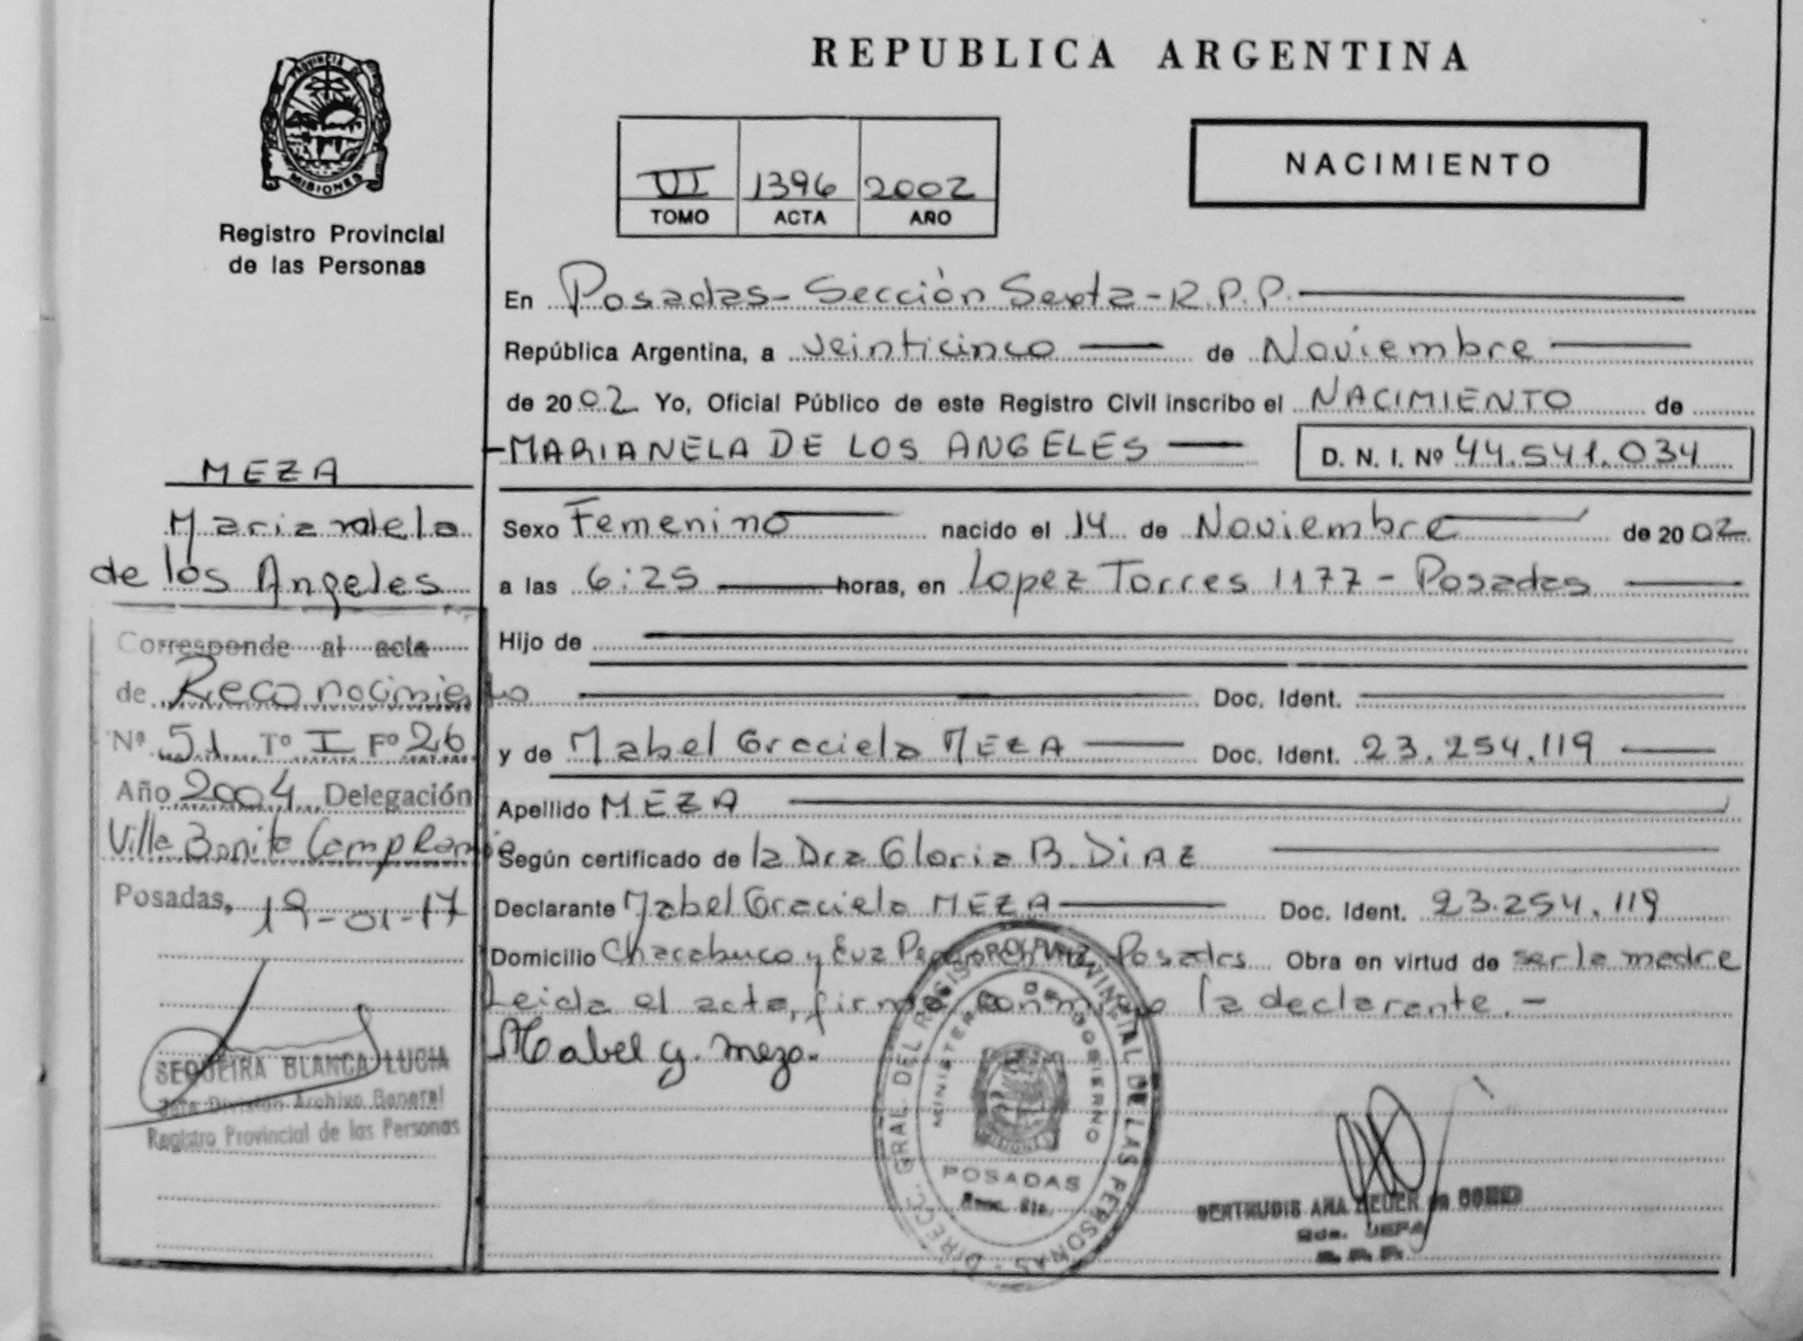 PROVINCIA DE
MISIONES
Registro Provincial
de las Personas
REPUBLICA ARGENTINA
VI 1396 2002
TOMO ACTA AÑO
NACIMIENTO
En Posadas - Sección Sexta - R.P.P.
República Argentina, a veinticinco de Noviembre
de 2002 Yo, Oficial Público de este Registro Civil inscribo el NACIMIENTO de
- MARIANELA DE LOS ANGELES D. N. I. Nº 44.541.034
Sexo Femenino nacido el 14 de Noviembre de 2002
a las 6:25 horas, en Lopez Torres 1177 - Posadas
Hijo de
Doc. Ident.
y de Mabel Graciela MEZA Doc. Ident. 23.254.119
Apellido MEZA
Según certificado de la Dra Gloria B. DIAZ
Declarante Mabel Graciela MEZA Doc. Ident. 23.254.119
Domicilio Chacabuco y Eva Posadas Obra en virtud de ser la madre
Leida el acta, firma conmigo la declarante. -
Mabel G. Meza.
MEZA
Marianela
de los Angeles
Corresponde al acta
de Reconocimiento
Nº 51 Tº I Fº 26
Año 2004 Delegación
Villa Bonita
Posadas, 19-01-17
SEQUEIRA BLANCA LUCIA
Jefa División Archivo General
Registro Provincial de las Personas
DIRECC. GRAL. DEL REGISTRO PROVINCIAL DE LAS PERSONAS
MINISTERIO DE GOBIERNO
MISIONES
POSADAS
GERTRUDIS ANA